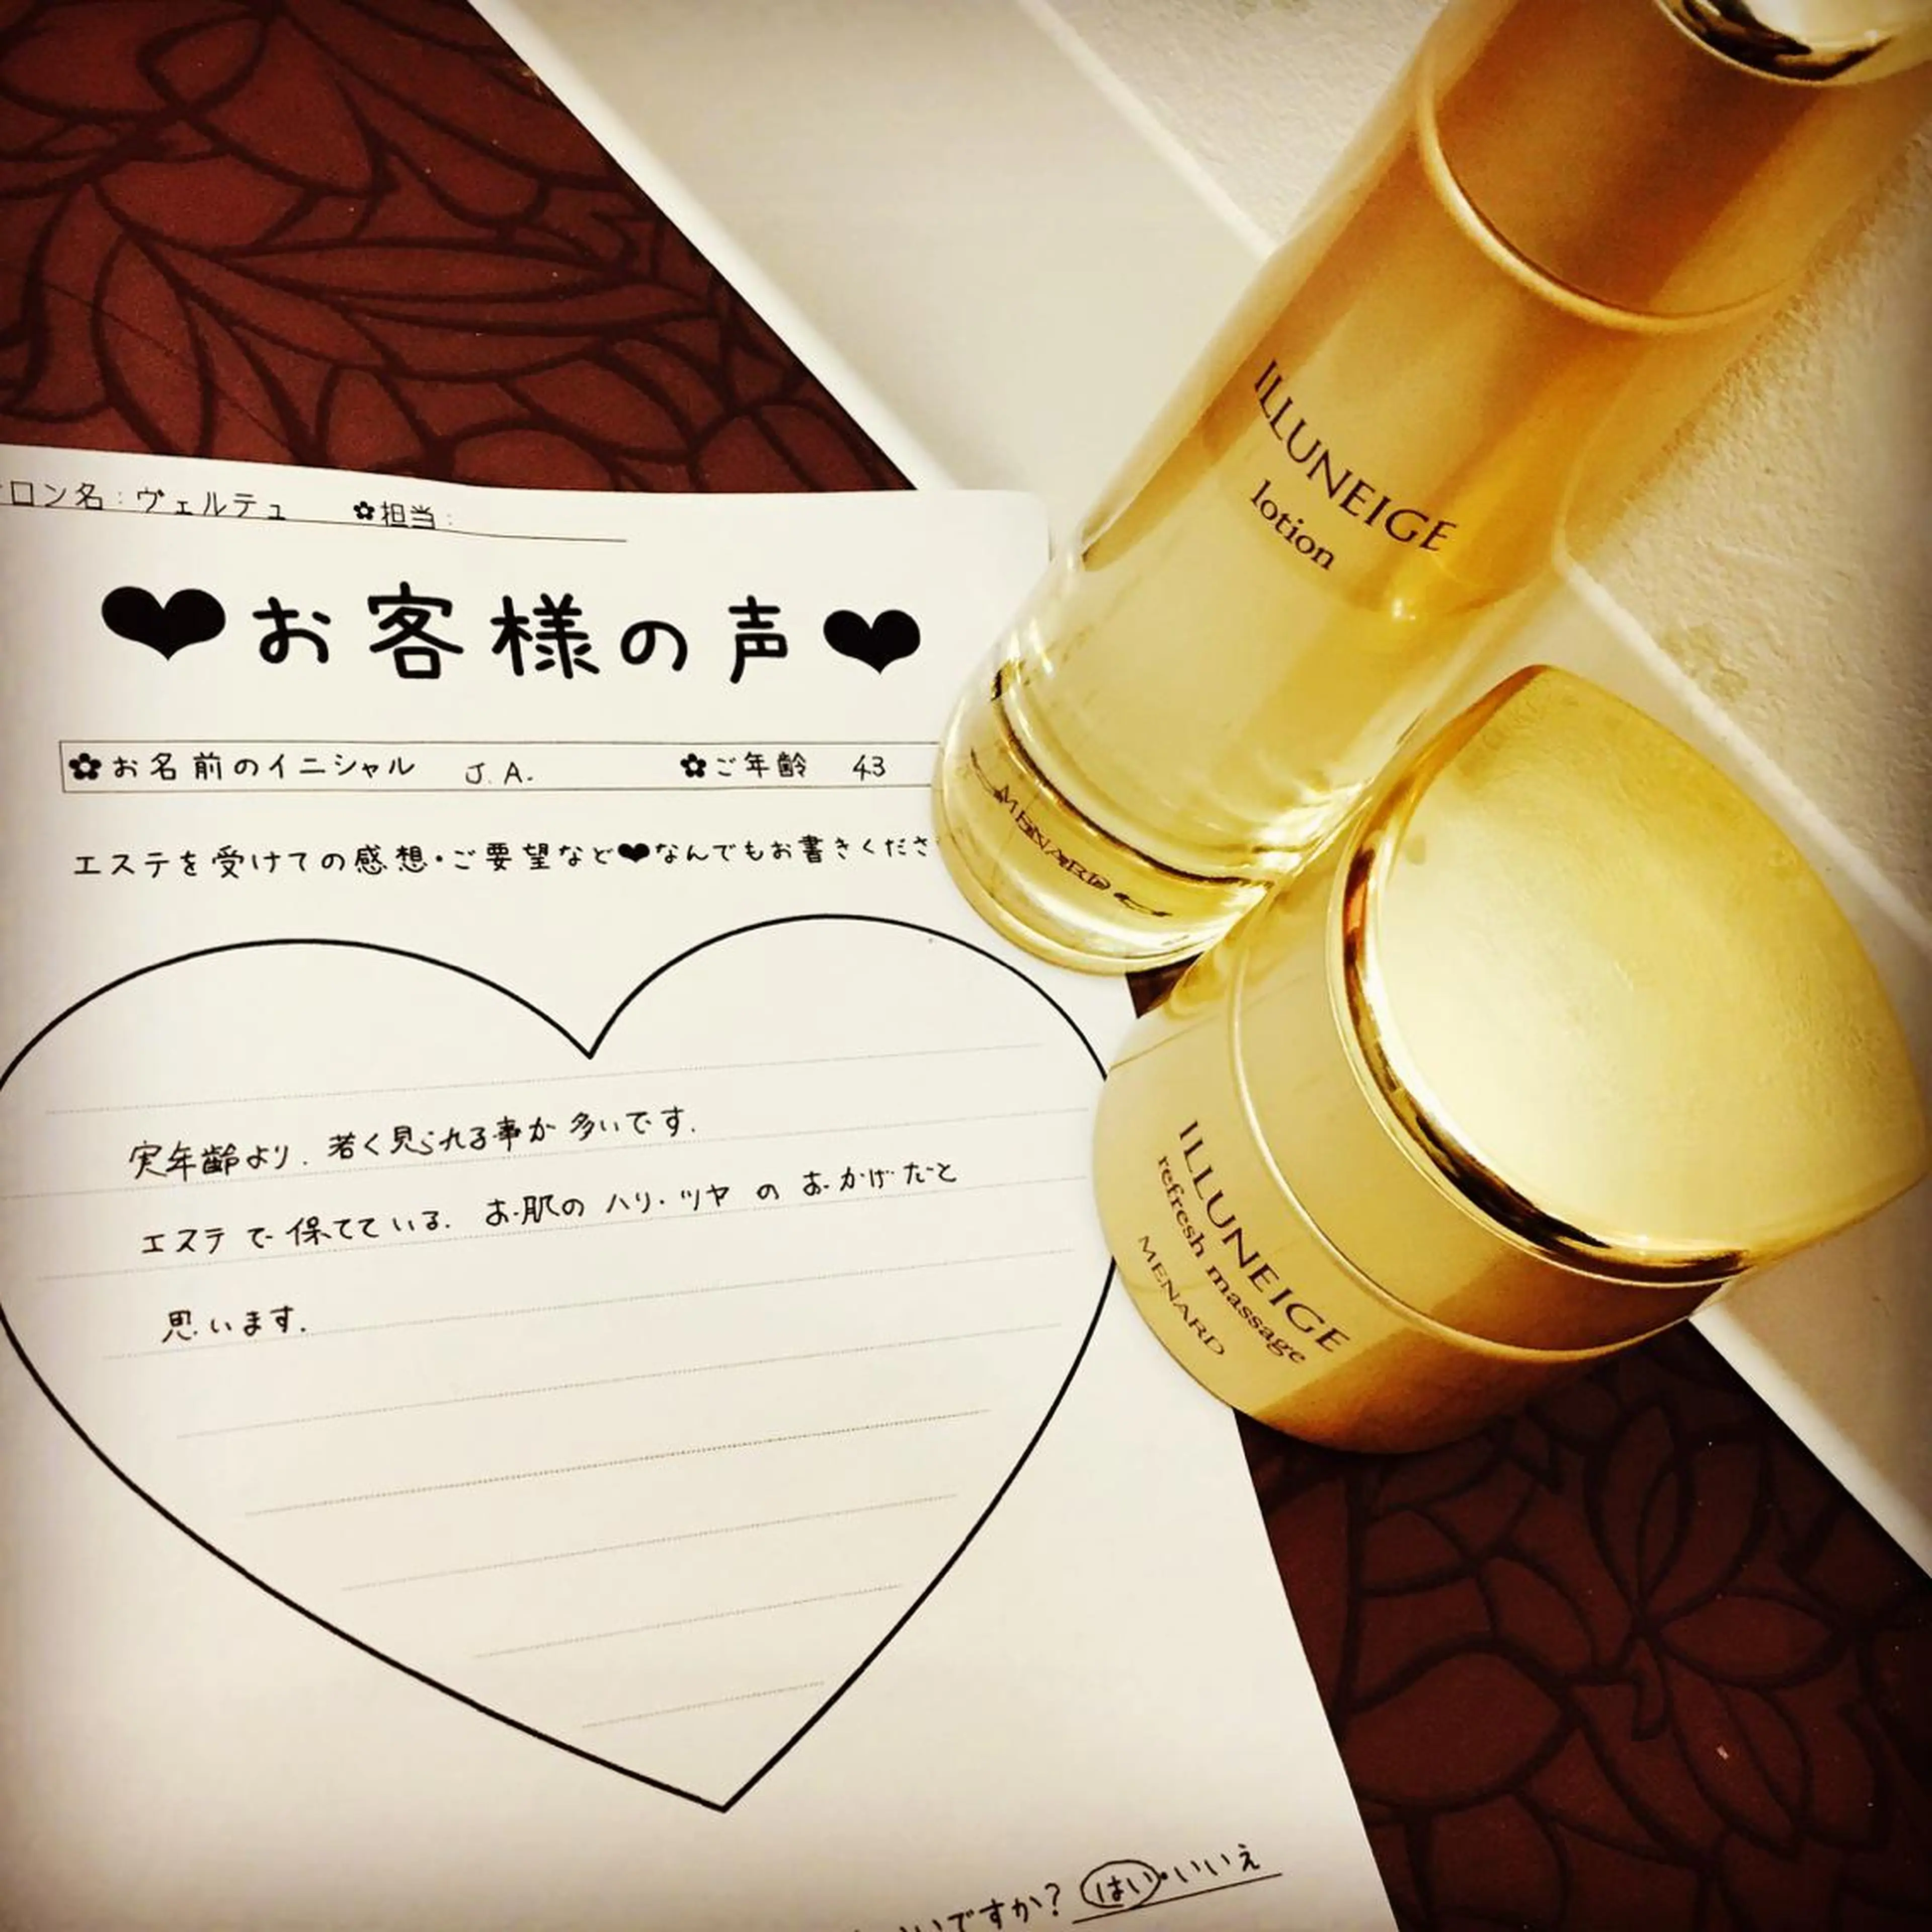 ロン名：ヴェルテュ ✿担当：
❤お客様の声❤
✿お名前のイニシャル J.A. ✿ご年齢 43
エステを受けての感想・ご要望など❤なんでもお書きくださ
実年齢より、若く見られる事が多いです。
エステで保てている、お肌のハリ・ツヤのおかげだと
思います。
いですか？ はい・いいえ
ILLUNEIGE
lotion
MENARD
ILLUNEIGE
refresh massage
MENARD